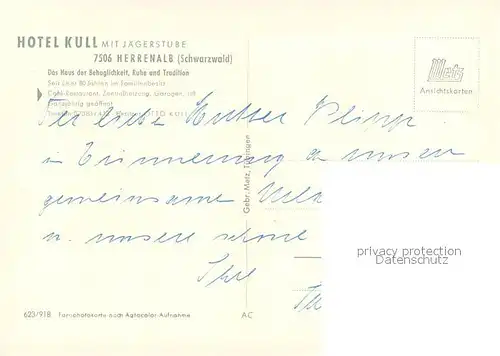 HOTEL KULL MIT JÄGERSTUBE
7506 HERRENALB (Schwarzwald)
Das Haus der Behaglichkeit, Ruhe und Tradition
Seit über 80 Jahren im Familienbesitz
Café-Restaurant, Zentralheizung, Garagen,
Ganzjährig geöffnet
Metz
Ansichtskarten
Mutter
in Erinnerung an unsere
gemeinsame
u. unsere schöne
Ihre
Gebr. Metz, Tübingen
privacy protection
Datenschutz
623/918 Farbphotokarte nach Agfacolor-Aufnahme AC